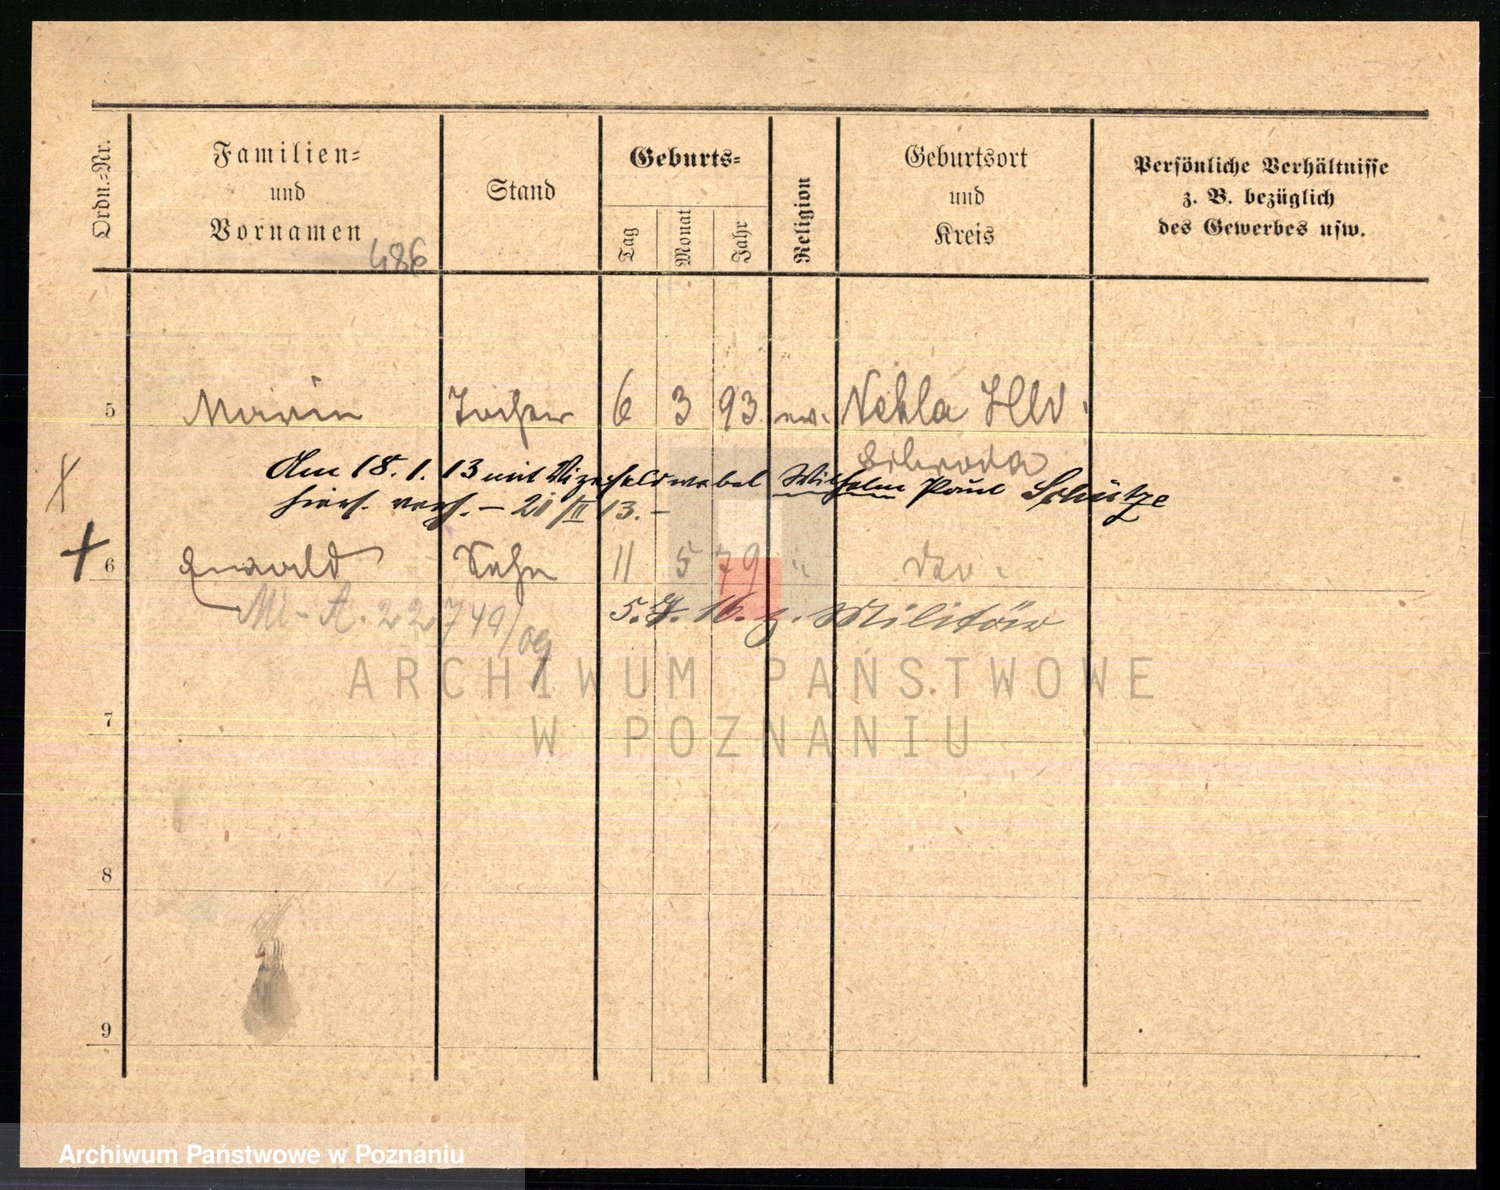 Ordn.-Nr.
Familien-
und
Vornamen
Stand
Geburts-
Tag
Monat
Jahr
Religion
Geburtsort
und
Kreis
Persönliche Verhältnisse
z. B. bezüglich
des Gewerbes usw.
486
5 Tochter 6 3 93 ev. Nekla Hld.
Schroda
Am 18. 1. 13 mit Vizefeldwebel Wilhelm Paul Schütze
hiers. verh. – 21/II 13. –
6 Ewald Sohn 11 5 79 " Do.
Mi-A. 22749/09 5. 7. 16. z. Militär
7
8
9
ARCHIWUM PAŃSTWOWE
W POZNANIU
Archiwum Państwowe w Poznaniu